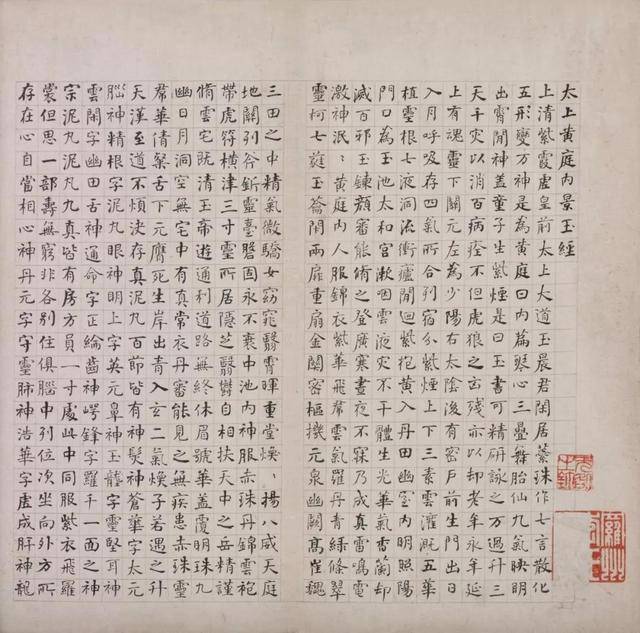 太上黄庭内景玉經
上清紫霞虛皇前太上大道玉晨君閑居蘂珠作七言散化
五形變万神是為黄庭曰内篇琴心三疊舞胎仙九氣映明
出霄間神蓋童子生紫煙是曰玉書可精研詠之万過升三
天千灾以消百病痊不但虎狼之凶殘亦以却老年永年延
上有魂靈下關元左為少陽右太陰後有密戶前生門出日
入月呼吸存四氣所合列宿分紫煙上下三素雲灌溉五華
植靈根七液洞流衝廬間迴紫抱黄入丹田幽室内明照陽
門口為玉池太和宮漱咽靈液灾不干體生光華氣香蘭却
滅百邪玉鍊顏審能脩之登廣寒晝夜不寐乃成真雷鳴電
激神泯〻黄庭内人服錦衣紫華飛帬雲氣羅丹青綠條翠
靈柯七蕤玉籥閉兩扉重扇金關密樞機元泉幽闕高崔巍
三田之中精氣微驕女窈窕翳霄暉重堂煥〻揚八威天庭
地關列斧斤靈臺盤固永不衰中池内神服赤珠丹錦雲袍
帶虎符横津三寸靈所居隱芝翳鬱自相扶天中之岳精謹
脩雲宅既清玉帝遊通利道路無終休眉號華蓋覆明珠九
幽日月洞空無宅中有真常衣丹審能見之無疾患赤珠靈
帬華蒨粲舌下元膺死生岸出青入玄二氣煥子若遇之升
天漢至道不煩決存真泥丸百節皆有神髮神蒼華字太元
腦神精根字泥丸眼神明上字英元鼻神玉壟字靈堅耳神
雲閑字幽田舌神通命字正綸齒神崿鋒字羅千一面之神
宗泥丸泥丸九真皆有房方員一寸處此中同服紫衣飛羅
裳但思一部壽無窮非各别住俱腦中列位次坐向外方所
存在心自當相心神丹元字守靈肺神浩華字虛成肝神龍